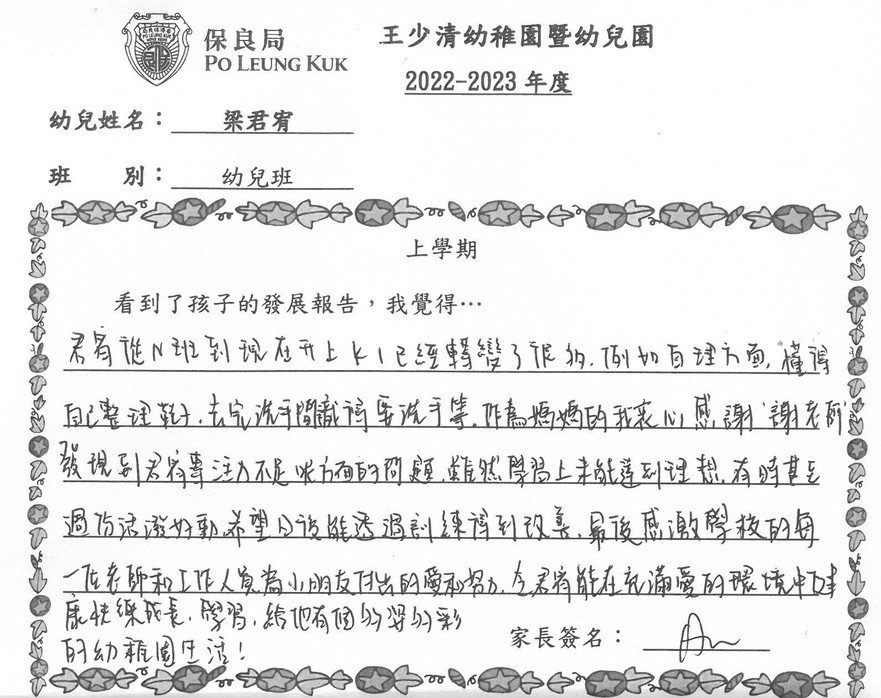 保良局
PO LEUNG KUK
王少清幼稚園暨幼兒園
2022-2023 年度
幼兒姓名：梁君宥
班　　別：幼兒班
上學期
看到了孩子的發展報告，我覺得…
君宥從N班到現在升上K1已經轉變了很多，例如自理方面，懂得
自己整理鞋子，去完洗手間識得要洗手等，作為媽媽的我衷心感謝 謝老師
發現到君宥專注力不足 方面的問題，雖然學習上未能達到理想，有時甚至
過份活潑好動，希望日後能透過訓練得到改善，最後感激學校的每
一位老師和工作人員為小朋友付出的愛和努力，令君宥能在充滿愛的環境中健
康快樂成長，學習，給他有個多姿多彩
的幼稚園生活！
家長簽名：